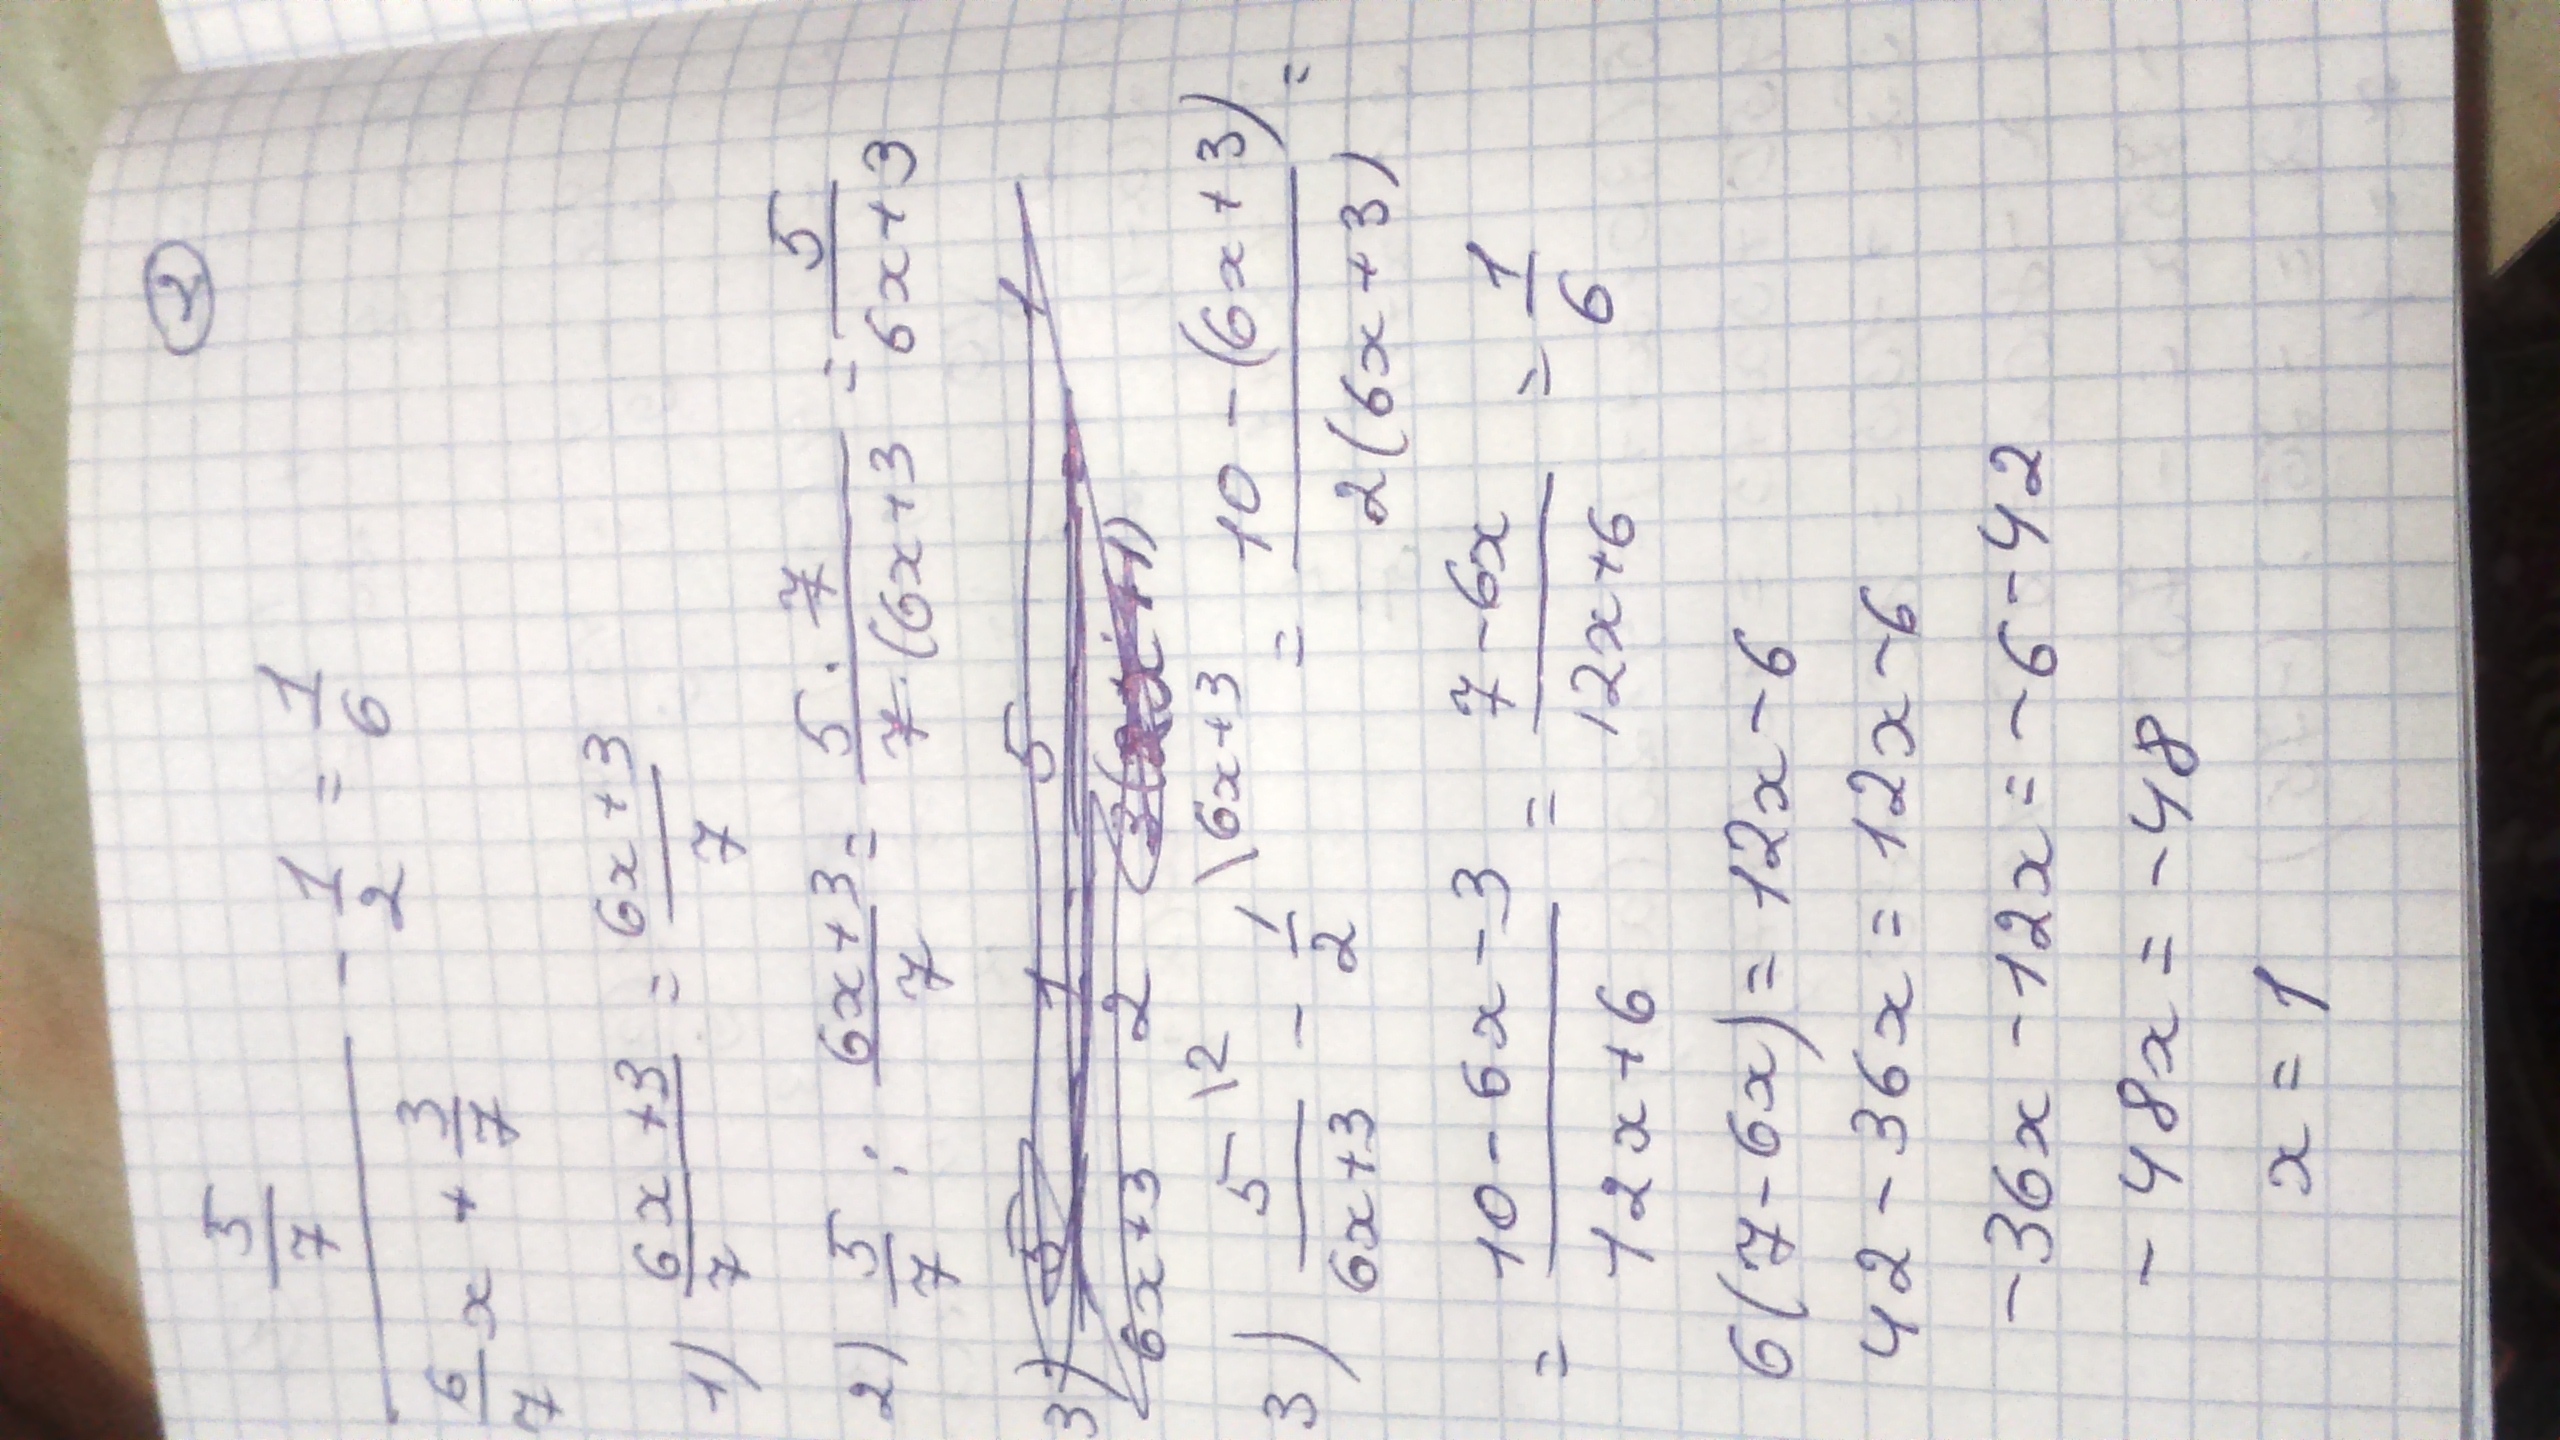 ②
5/7 / (6/7 x + 3/7) - 1/2 = 1/6
1) 6x+3/7 = 6x+3/7
2) 5/7 : 6x+3/7 = 5·7/7·(6x+3 = 5/6x+3
3)
6x+3 2
3) 5\2/6x+3 - 1\6x+3/2 = 10-(6x+3)/2(6x+3) =
= 10-6x-3/12x+6 = 7-6x/12x+6 = 1/6
6(7-6x)=12x-6
42-36x=12x-6
-36x-12x=-6-42
-48x=-48
x=1